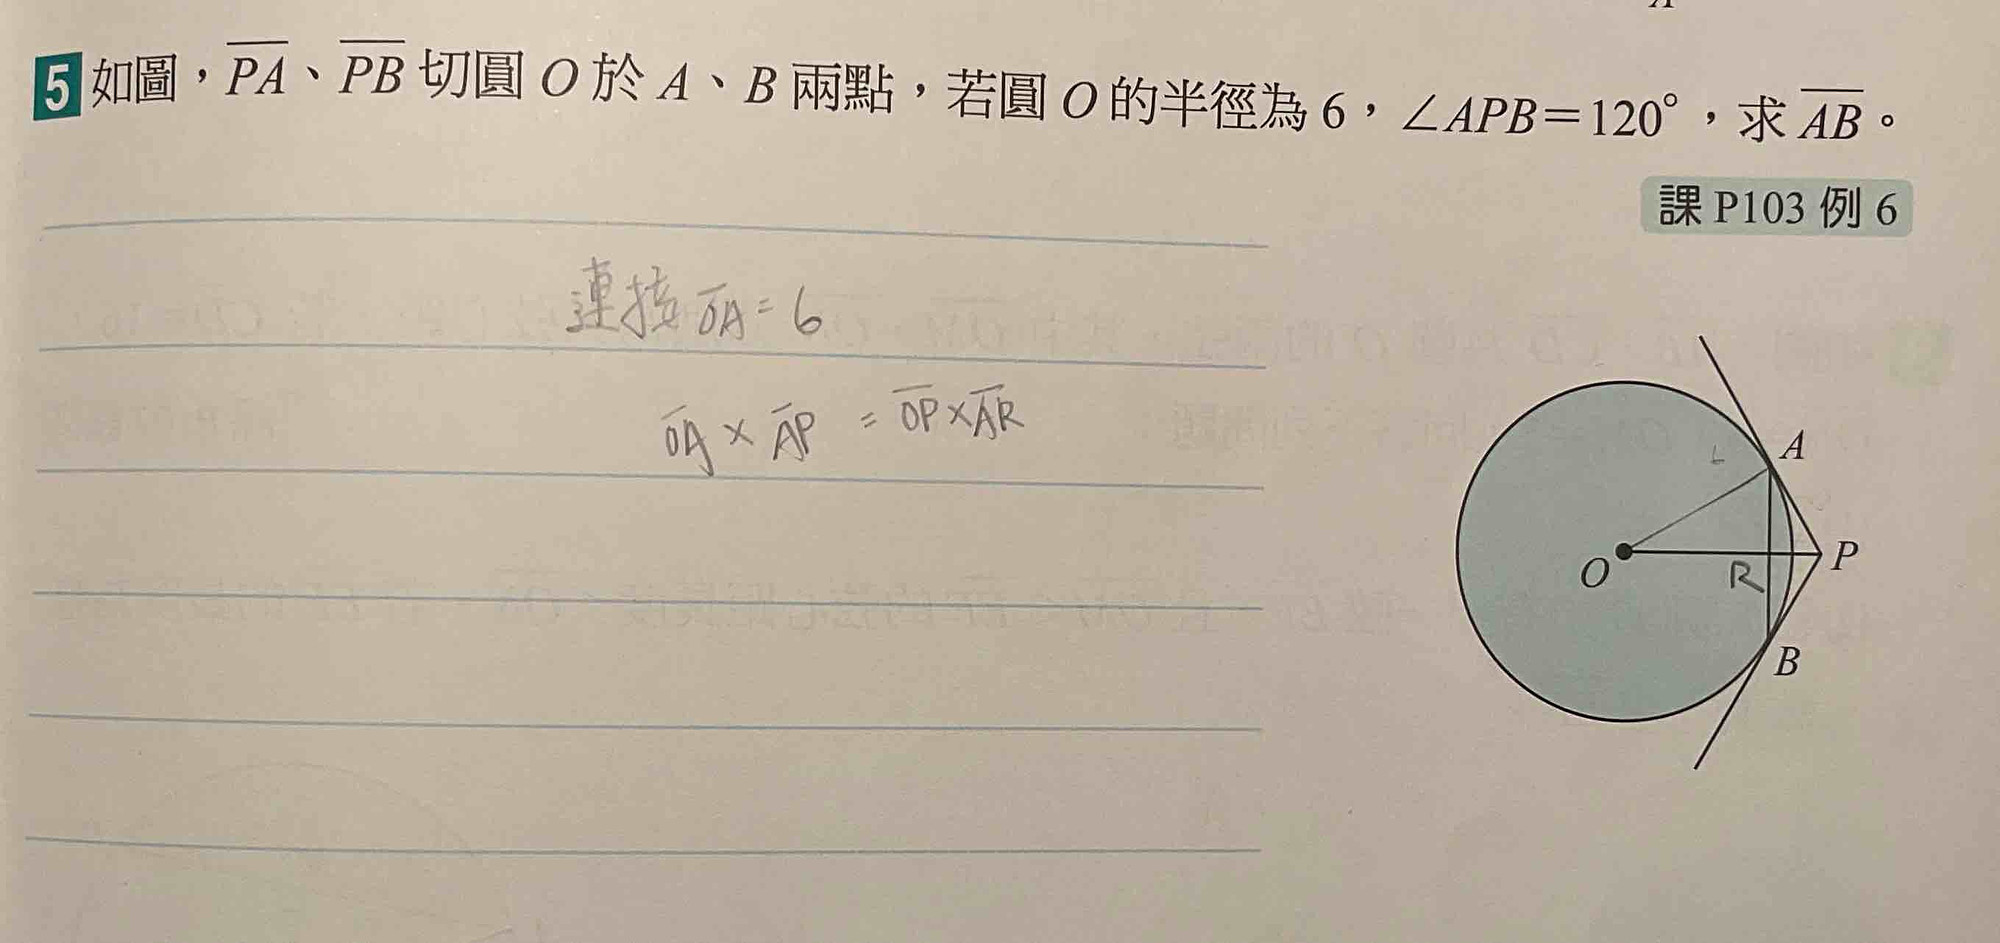 5 如圖，PA、PB 切圓 O 於 A、B 兩點，若圓 O 的半徑為 6，∠APB＝120°，求 AB。
課 P103 例 6
連接 OA = 6
OA × AP = OP × AR
A
O
R
P
B